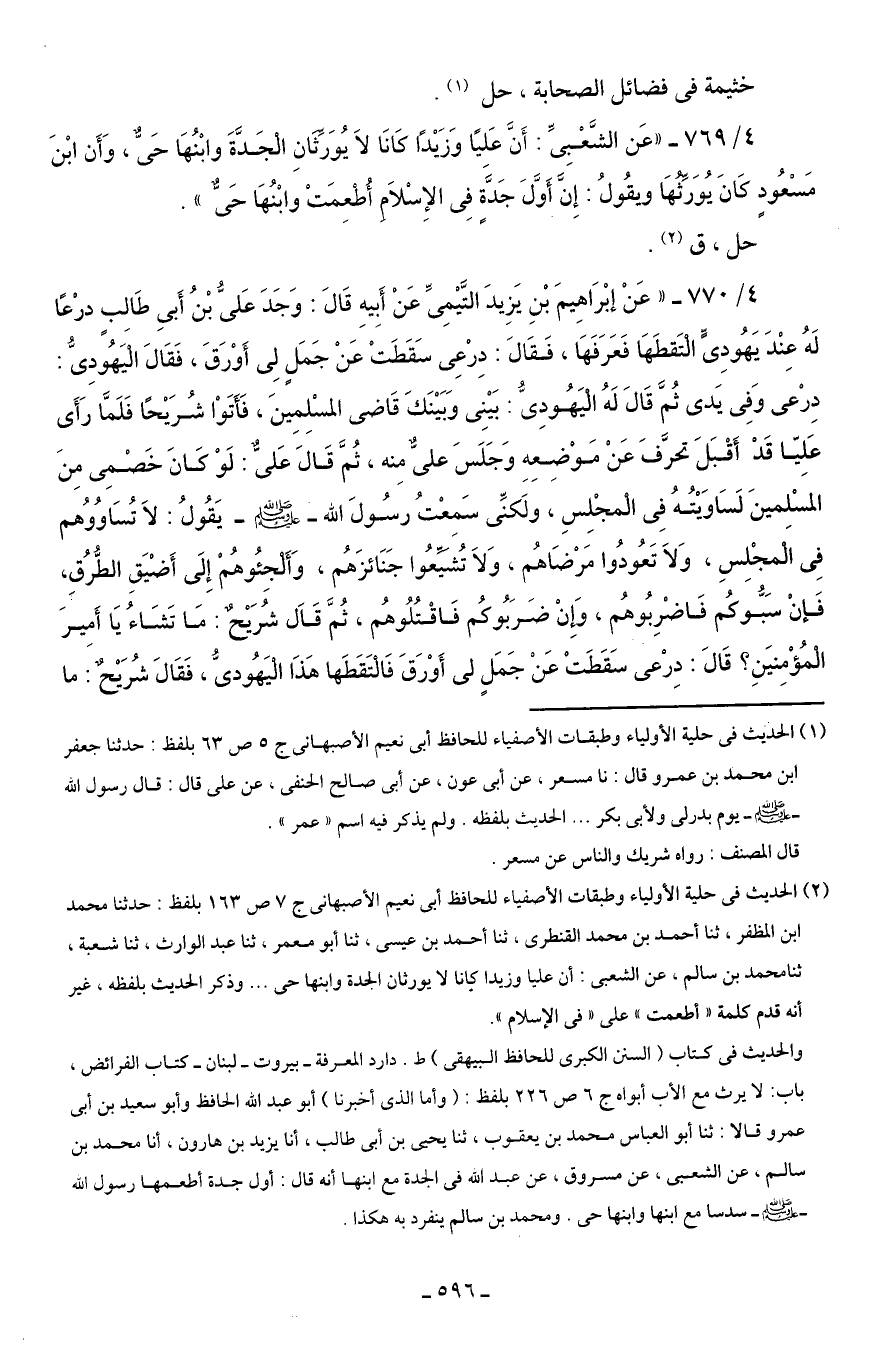 خثيمة فى فضائل الصحابة ، حل (١) .
٤/ ٧٦٩ ـ «عَن الشَّعْبِىِّ : أَنَّ عَليًا وَزَيْدًا كَانَا لاَ يُوَرِّثَانِ الْجَدَّةَ وابْنُهَا حَىٌّ ، وَأَن ابْنَ
مَسْعُودٍ كَانَ يُوَرِّثُهَا ويقُولُ : إِنَّ أَوَّلَ جَدَّةٍ فِى الإِسْلاَمِ أُطْعِمَتْ وابْنُهَا حَىٌّ » .
حل ، ق (٢) .
٤/ ٧٧٠ ـ « عَنْ إبْرَاهِيمَ بْنِ يَزِيدَ التَّيْمِىِّ عَنْ أبيه قَالَ : وَجَدَ عَلىُّ بْنُ أبى طَالبٍ درعًا
لَهُ عِنْدَ يَهُودىٍّ الْتَقطَهَا فَعَرَفَهَا ، فَـقَالَ : درْعِى سَقَطَتْ عَنْ جَمَلٍ لِى أَوْرَقَ ، فَقَالَ الْيَهُودىُّ :
درْعى وَفِى يَدى ثُمَّ قَالَ لَهُ الْيَهُـودىُّ : بَيْنِى وَبَيْنَكَ قَاضِى المسْلِمينَ ، فَأَتَوْا شُـرَيْحًا فَلَمَّا رَأَى
عَليّـا قَدْ أَقْبَلَ تحرَّفَ عَنْ مَـوْضِـعِهِ وَجَلَسَ عَلىٌّ منه ، ثُمَّ قَـالَ عَلىٌّ : لَوْ كَـانَ خَصْمِى مِنَ
المسْلمينَ لَسَاوَيْتُـهُ فِى المجْلسِ ، ولَكنِّى سَمعْتُ رسُـولَ الله ـ ﷺ ـ يَقُولُ : لاَ تُسَاوُوُهم
فِى الْمجْلِسِ ، وَلاَ تَعُودُوا مَرْضَاهُم ، وَلاَ تُشَيِّعُوا جَنَائزَهُم ، وَأَلْجِئُوهُمْ إِلَى أَضْيَقِ الطُّرُقِ،
فَـإِنْ سَبُّـوكُم فَـاضْرِبُوهُم ، وَإِنْ ضَـرَبُوكُم فَـاقْـتُلُوهُم ، ثُمَّ قَـالَ شُرَيْحٌ : مَـا تَشَـاءُ يَا أَمِيـرَ
الْمُؤْمنِينَ؟ قَالَ : درْعِى سَقَطَتْ عَنْ جَمَلٍ لى أَوْرَقَ فَالْتَقَطَها هَذَا الْيَهُودىُّ ، فَقَالَ شُرَيْحٌ : ما
(١) الحديث فى حلية الأولياء وطبقـات الأصفياء للحافظ أبى نعيم الأصبهـانى ج ٥ ص ٦٣ بلفظ : حدثنا جعفر
ابن محـمد بن عمـرو قال : نا مسعر ، عن أبى عون ، عن أبى صـالح الحنفى ، عن على قال : قـال رسول الله
ـ ﷺ ـ يوم بدرلى ولأبى بكر ... الحديث بلفظه . ولم يذكر فيه اسم « عمر » .
قال المصنف : رواه شريك والناس عن مسعر .
(٢) الحديث فى حلية الأولياء وطبقات الأصفياء للحافظ أبى نعيم الأصبهانى ج ٧ ص ١٦٣ بلفظ : حدثنا محمد
ابن المظفر ، ثنا أحمـد بن محمد القنطرى ، ثنا أحـمد بن عيسى ، ثنا أبو مـعمر ، ثنا عبد الوارث ، ثنا شـعبة ،
ثنامحمد بن سالم ، عن الشعبى : أن عليا وزيدا كانا لا يورثان الجدة وابنها حى ... وذكر الحديث بلفظه ، غير
أنه قدم كلمة « أطعمت » على « فى الإسلام ».
والحديث فى كـتاب ( السنن الكبرى للحافظ الـبيهقى ) ط . دارد المعرفة ـ بيروت ـ لبنان ـ كـتاب الفرائض ،
باب: لا يرث مع الأب أبواه ج ٦ ص ٢٢٦ بلفظ : ( وأما الذى أخبرنا ) أبو عبد الله الحافظ وأبو سعيد بن أبى
عمرو قـالا : ثنا أبو العباس مـحمد بن يعقـوب ، ثنا يحيى بن أبى طالب ، أنا يزيد بن هارون ، أنا محـمد بن
سالـم ، عن الشعـبى ، عن مسـروق ، عن عبـد الله فى الجدة مع ابنهـا أنه قال : أول جـدة أطعـمهـا رسول الله
ـ ﷺ ـ سدسا مع ابنها وابنها حى . ومحمد بن سالم ينفرد به هكذا .
ـ ٥٩٦ ـ